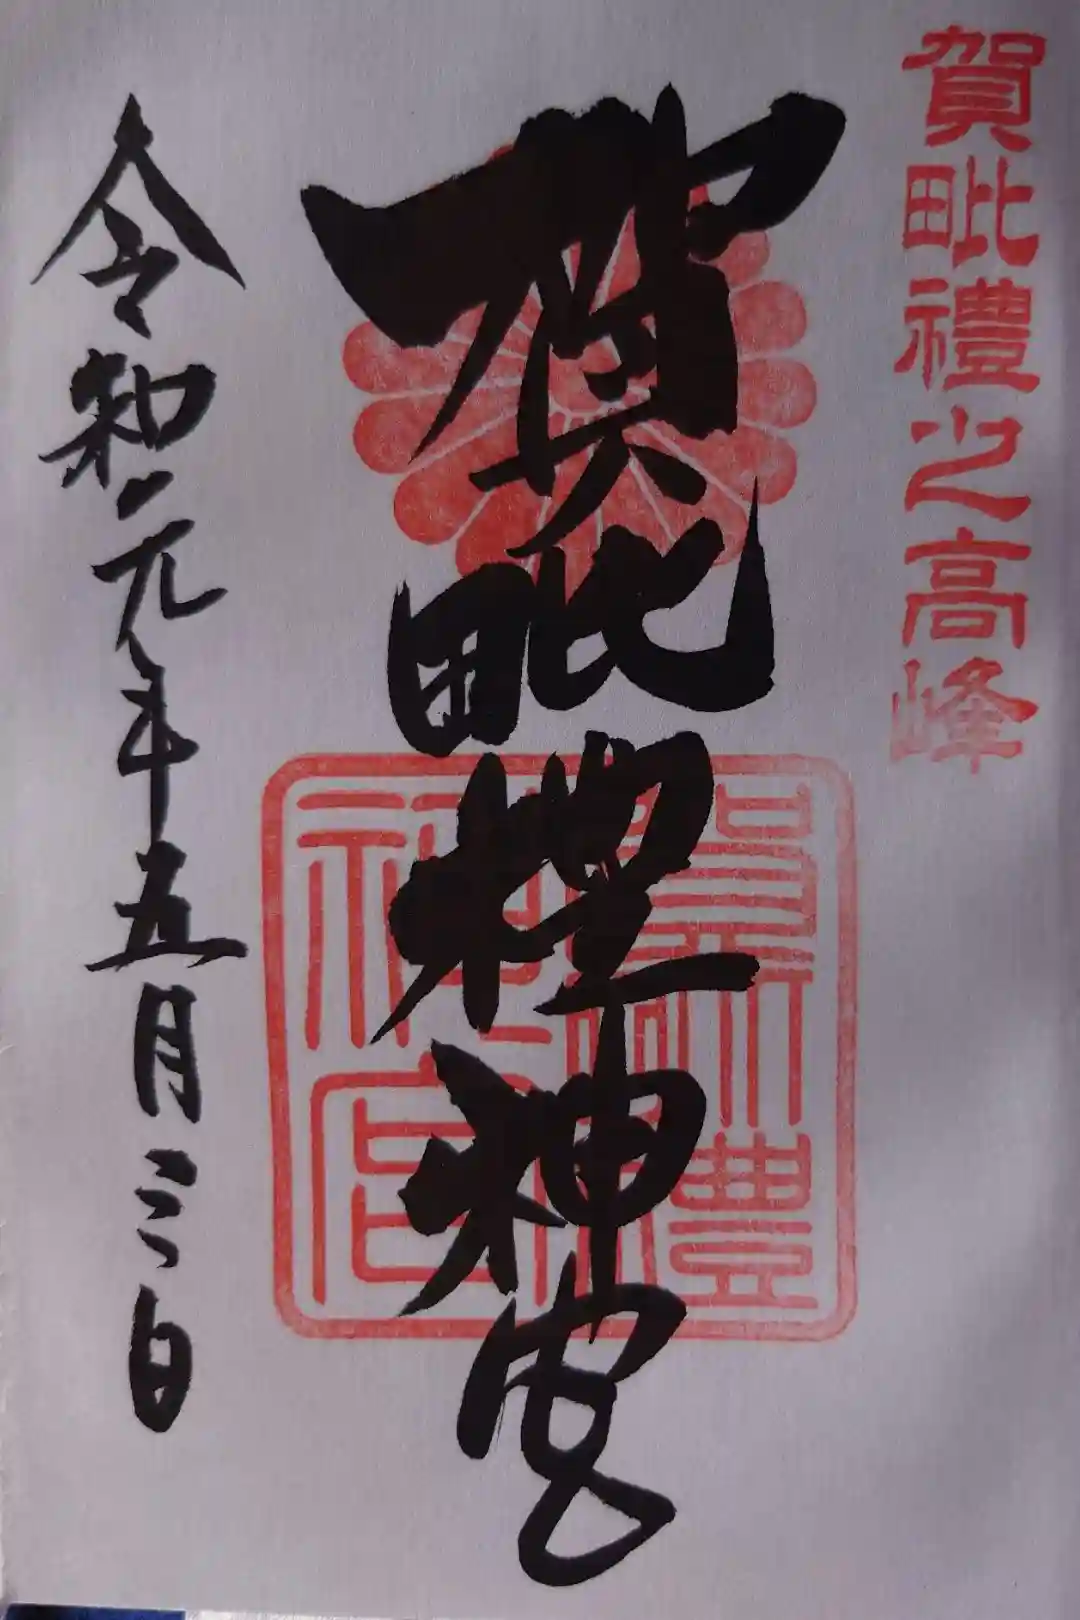 賀毗禮之高峰
賀毗禮神宮
賀毗禮
神宮
令和元年五月三日